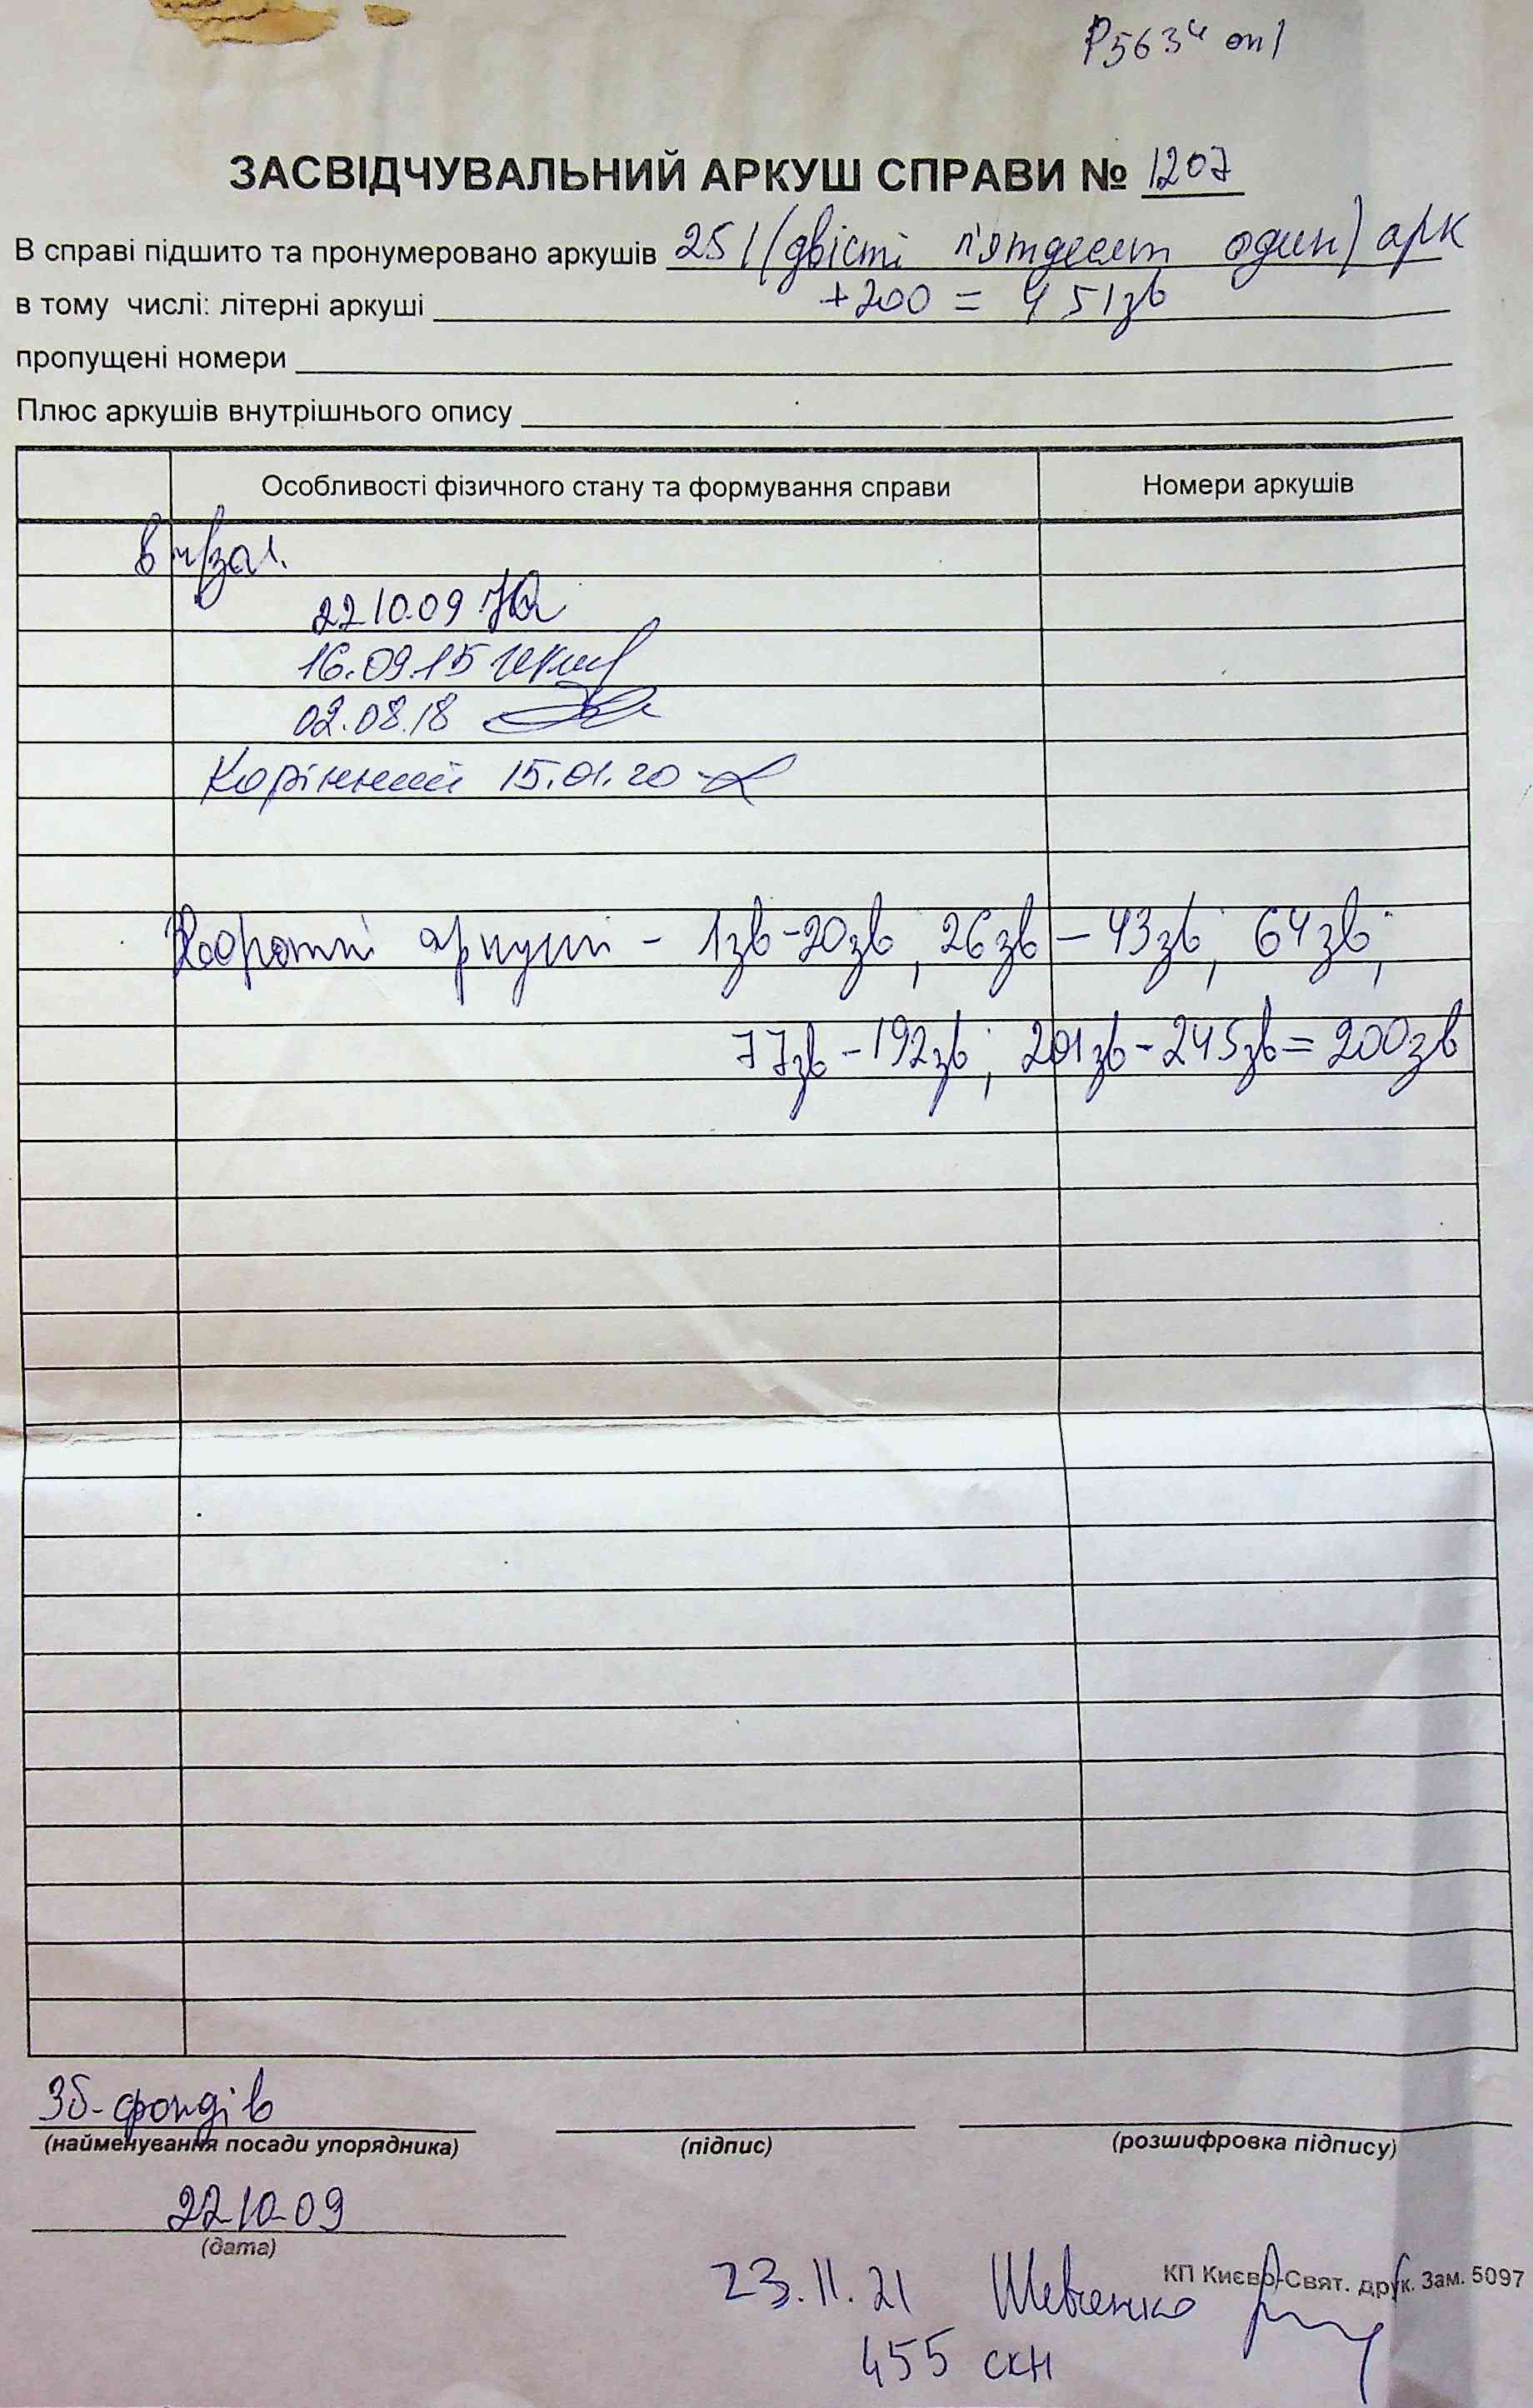 Р5634 оп1
ЗАСВІДЧУВАЛЬНИЙ АРКУШ СПРАВИ № 1207
В справі підшито та пронумеровано аркушів 251 (двісті п'ятдесят один) арк
в тому числі: літерні аркуші +200 = 451зв
пропущені номери
Плюс аркушів внутрішнього опису
Особливості фізичного стану та формування справи Номери аркушів
в ч/зал.
22.10.09
16.09.15
02.08.18
Корінний 15.01.20
Зворотні аркуші - 1зв-20зв; 26зв-43зв; 64зв;
77зв-192зв; 201зв-245зв=200зв
Зб-фондів
(найменування посади упорядника) (підпис) (розшифровка підпису)
22.10.09
(дата)
КП Києво-Свят. друк. Зам. 5097
23.11.21 Шевченко
455 скн